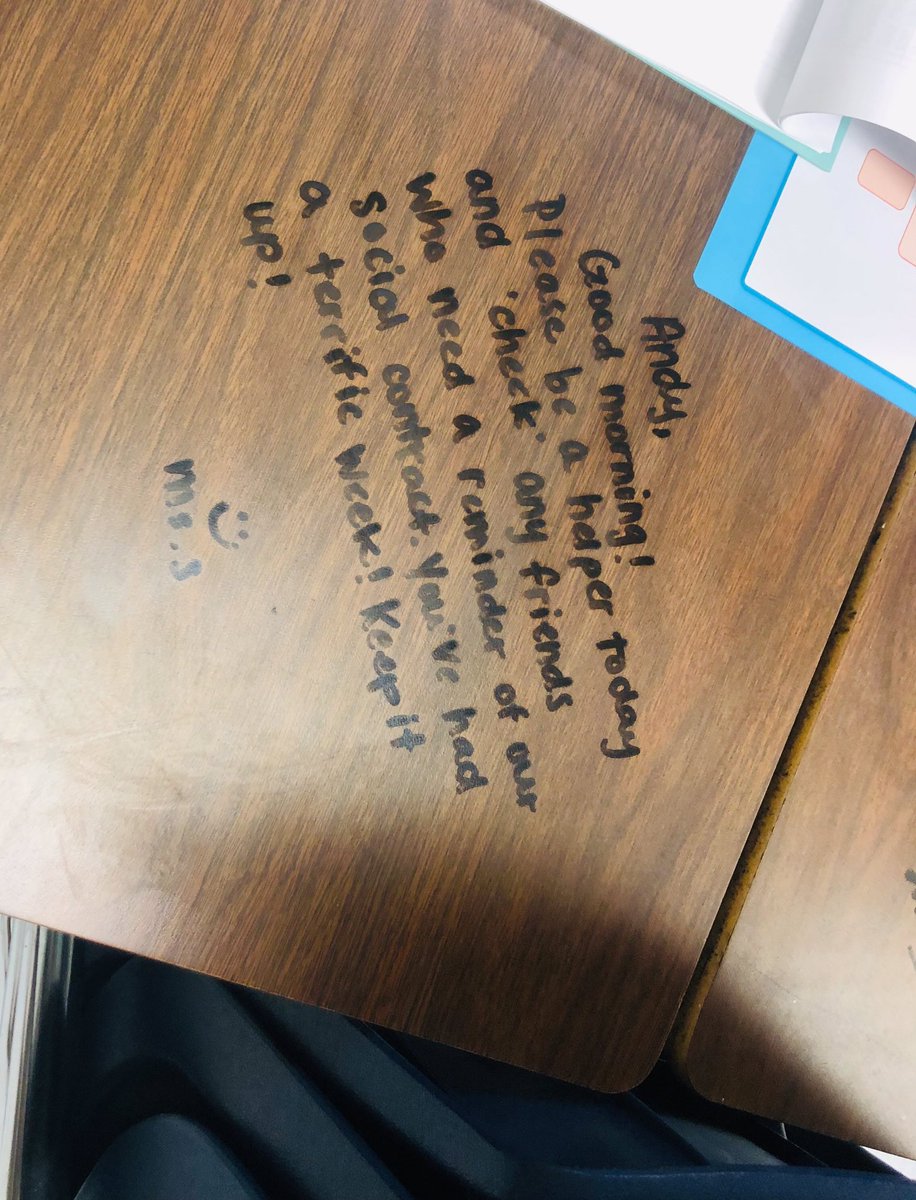 Andy,
Good morning!
Please be a helper today
and 'check' any friends
who need a reminder of our
social contract. You've had
a terrific week! Keep it
up!
Ms. S